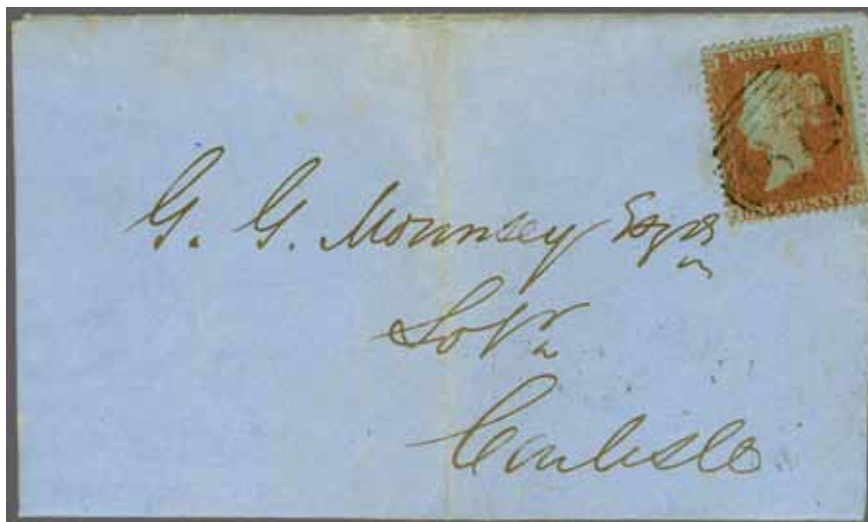 POSTAGE
ONE PENNY
G. G. Mounsey Esqre
Solr
Carlisle